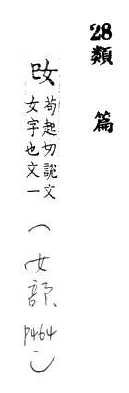 28類篇
妀
苟起切說文
女字也文一
(女部
P464)